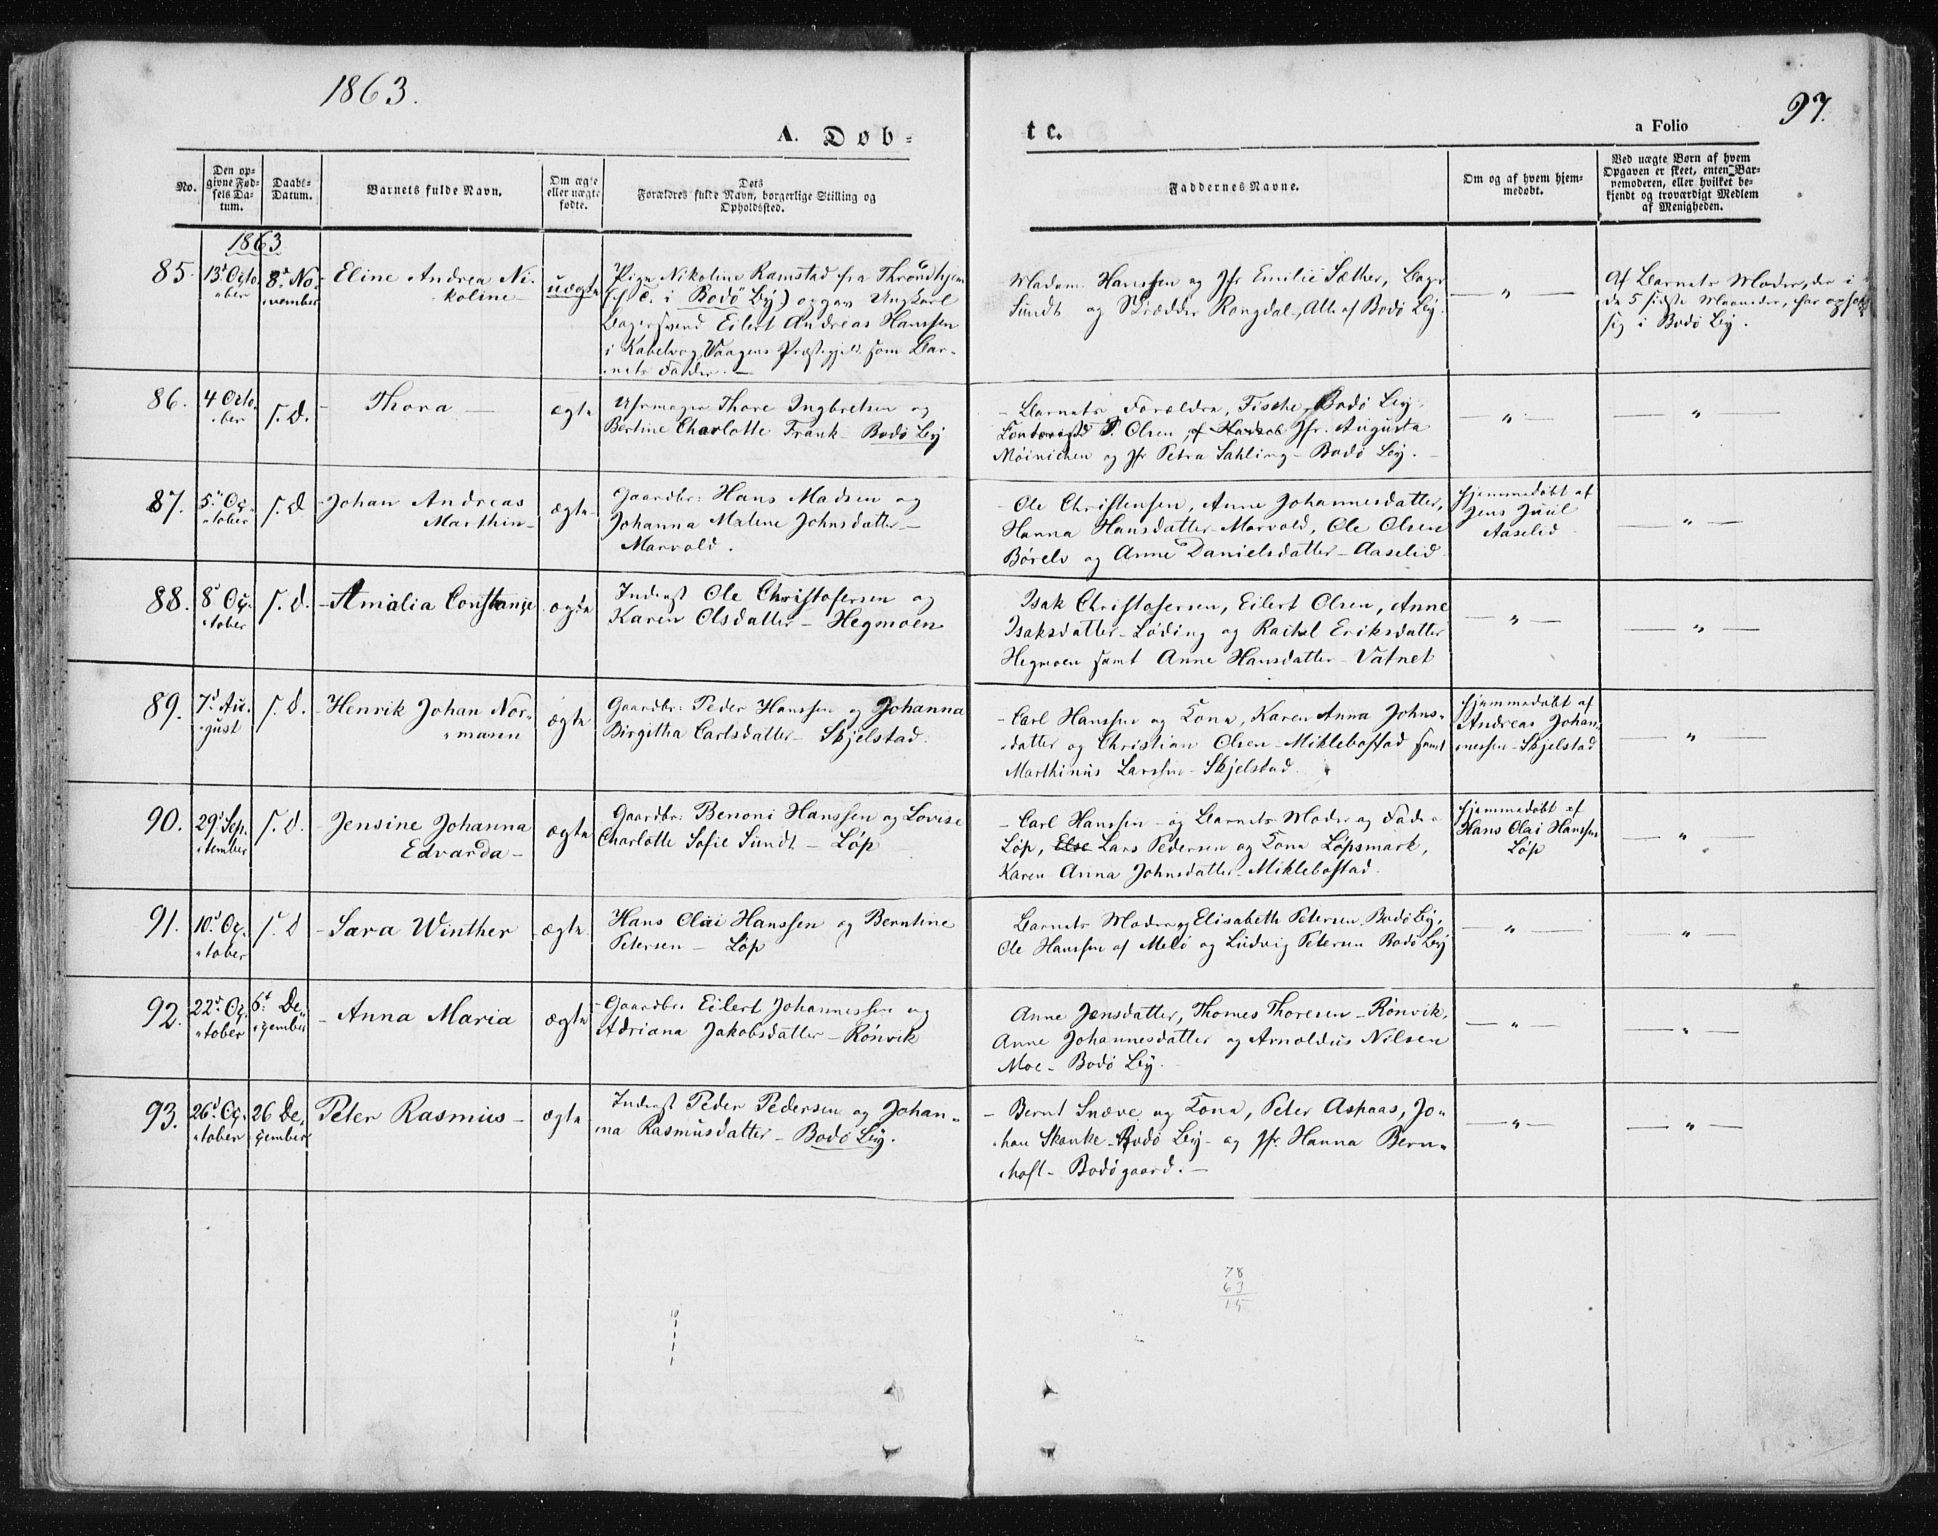 1863.
97.
A. Døb-
te.
a Folio
No.
Den op-
givne Fød-
sels Da-
tum.
Daabs-
Datum.
Barnets fulde Navn.
Om ægte
eller uægte
fødte.
Dets
Forældres fulde Navn, borgerlige Stilling og
Opholdssted.
Faddernes Navne.
Om og af hvem hjem-
medøbt.
Ved uægte Børn af hvem
Opgaven er skeet, enten Bar-
nemoderen, eller hvilket be-
kjendt og troværdigt Medlem
af Menigheden.
1863
85.
13d Octo-
ber
8d No-
vember
Eline Andrea Ni-
koline
uægte
Pige Nikoline Ramstad fra Throndhjem
i Bodö By) opgav Ungkarl
Eilert Andreas Hanssen
i Kabelvog Vaagens Præstegjeld som Bar-
nets Fader. –
Madam Hanssen og Jfr Emilie Sæther,
Sundt og Rongdal, Alle af Bodö By.
— " —
Af Barnets Moder, der i
de 5 sidste Maaneder, har
sig i Bodö By.
86.
4 Octo-
ber
s. D.
– Thora –
ægte
Uhrmager Thore Ingbretsen og
Bertine Charlotte Frank – Bodö By
– Barnets Forældre, Bodö By,
Olsen, Jfr. Augusta
Möinichen og Jfr Petra Sahling – Bodö By. –
— " —
— " —
87.
5d Oc-
tober
s. D
– Johan Andreas
Marthin –
ægte
Gaardbr: Hans Madsen og
Johanna Malene Johnsdatter –
Marvold.
– Ole Christensen, Anne Johannesdatter,
Hanna Hansdatter – Marvold, Ole Olsen
Börelv og Anne Danielsdatter – Aaselid
Hjemmedöbt af
Jens Juul
Aaselid
— " —
88.
8d Oc-
tober
s. D.
– Amalia Constanse
ægte
Inderst Ole Christofersen og
Karen Olsdatter – Hegmoen
Isak Christofersen, Eilert Olsen, Anne
Isaksdatter – Löding og Rachel Eriksdatter
Hegmoen samt Anne Hansdatter – Vatnet
— " —
— " —
89.
7d Au-
gust
s. D.
– Henrik Johan Nor-
mann
ægte
Gaardbr: Peder Hanssen og Johanna
Birgitha Carlsdatter – Skjelstad.
– Carl Hanssen og Kona, Karen Anna Johns-
datter og Christian Olsen – Miklebostad samt
Marthinus Larssen – Skjelstad.
Hjemmedöbt af
Andreas Johan-
nessen – Skjelstad
— " —
90.
29d Sep-
tember
s. D.
– Jensine Johanna
Edvarda –
ægte
Gaardbr: Benoni Hanssen og Lovise
Charlotte Sofie Sundt – Löp
– Carl Hanssen – og Barnets Moder og Fader
Löp, Else Lars Pedersen og Kona Löpsmark,
Karen Anna Johnsdatter – Miklebostad.
Hjemmedöbt af
Hans Olai Hanssen
Löp
— " —
91.
10d Oc-
tober
s. D
– Sara Winther
ægte
Hans Olai Hanssen og Berntine
Petersen – Löp
Barnets Moder og Elisabeth Petersen Bodö By,
Ole Hanssen af Melö og Ludvig Petersen Bodö By
— " —
— " —
92.
22d Oc-
tober
6d De-
cember
– Anna Maria
ægte
– Gaardbr: Eilert Johannessen og
Adriana Jakobsdatter – Rönvik
Anne Jensdatter, Thomes Thoresen – Rönvik,
Anne Johannesdatter og Arnoldus Nilsen
Moe – Bodö By.
— " —
— " —
93.
26d Oc-
tober
26 De-
cember
Peter Rasmus –
ægte
Inderst Peder Pedersen og Johan-
na Rasmusdatter – Bodö By.
– Bernt Snæve og Kona, Peter Aspaas, Jo-
han Skanke – Bodö By – og Jfr. Hanna Bern-
hoft – Bodögaard. –
— " —
— " —
78
63
15